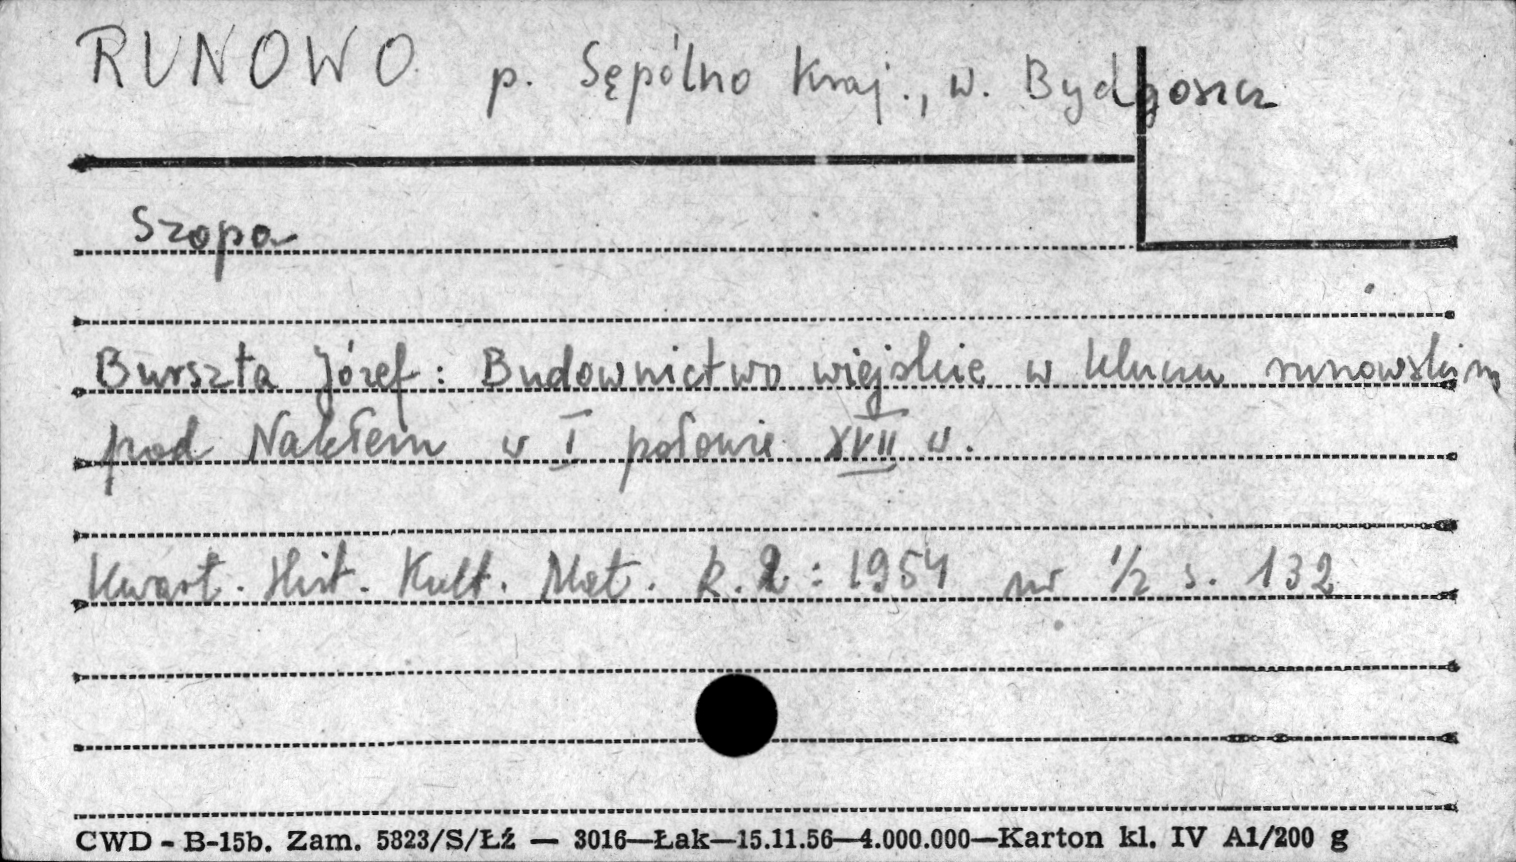 RUNOWO p. Sępólno Kraj., w. Bydgoszcz
Szopa
Burszta Józef: Budownictwo wiejskie w kluczu runowskim
pod Nakłem w I połowie XVII w.
Kwart. Hist. Kult. Mat. R. 2: 1954 nr 1/2 s. 132
CWD - B-15b. Zam. 5823/S/ŁŹ — 3016—Łak—15.11.56—4.000.000—Karton kl. IV A1/200 g